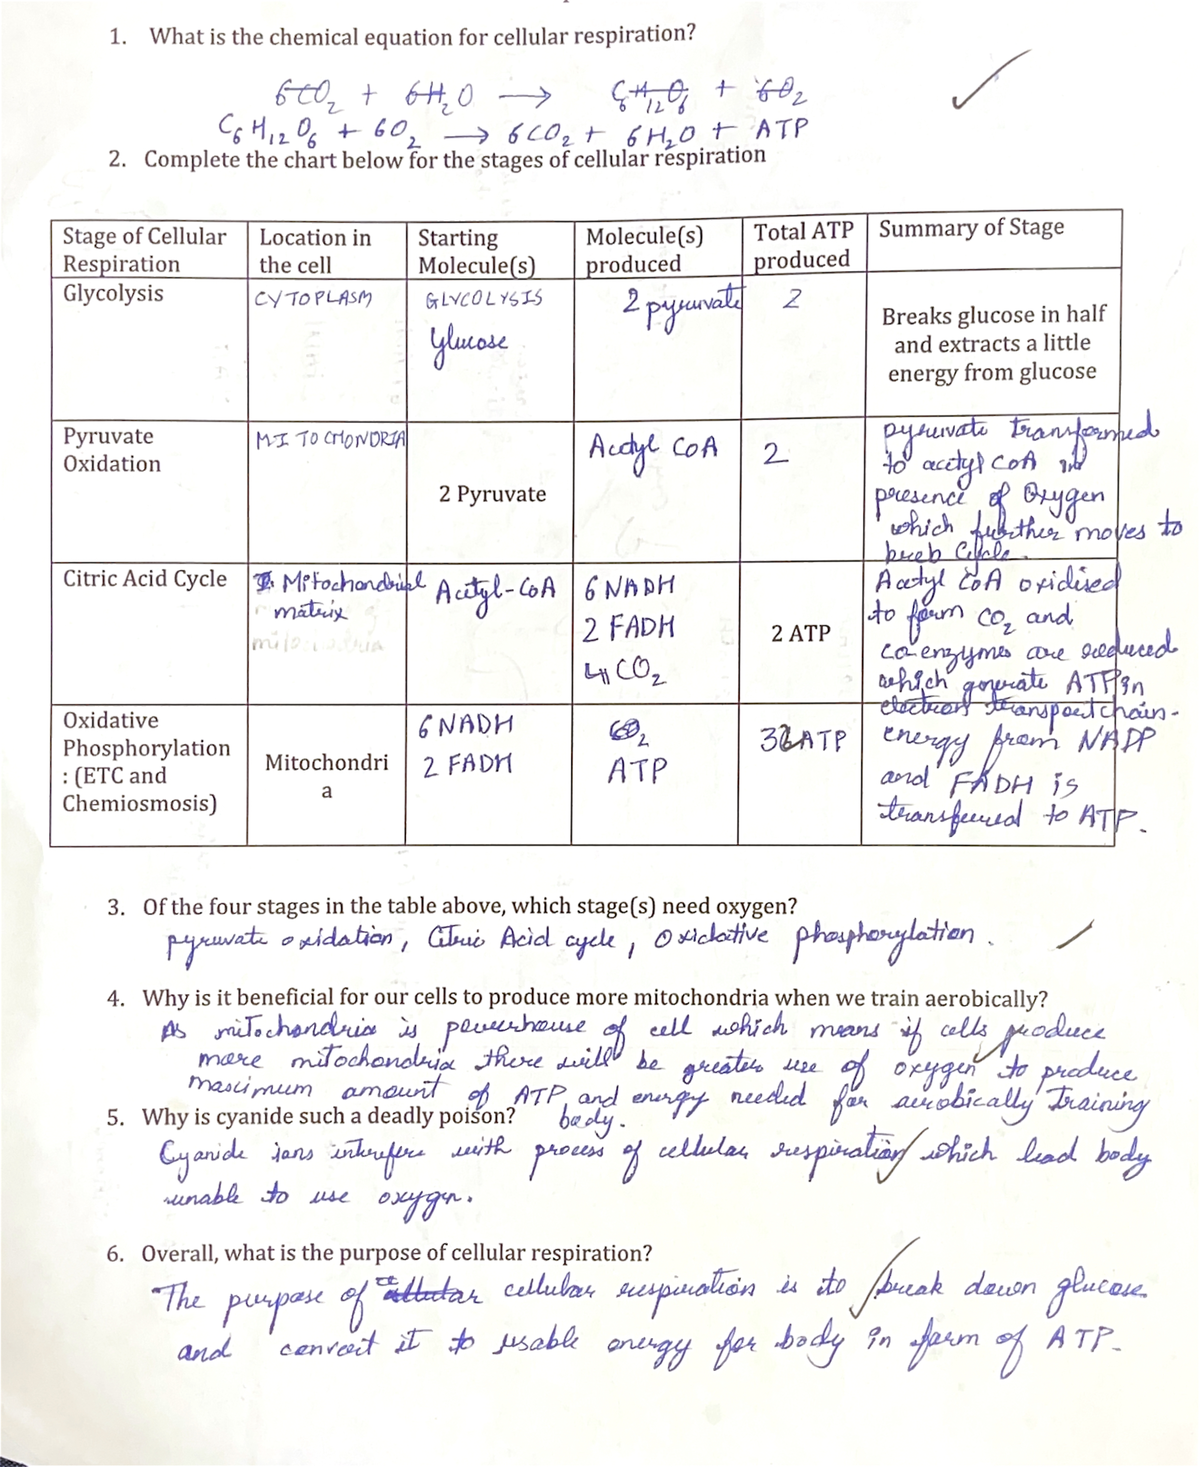 1. What is the chemical equation for cellular respiration?
6CO₂ + 6H₂O → C₆H₁₂O₆ + 6O₂
C₆H₁₂O₆ + 6O₂ → 6CO₂ + 6H₂O + ATP
2. Complete the chart below for the stages of cellular respiration
Stage of Cellular Respiration
Location in the cell
Starting Molecule(s)
Molecule(s) produced
Total ATP produced
Summary of Stage
Glycolysis
CYTOPLASM
GLYCOLYSIS
glucose
2 pyruvate
2
Breaks glucose in half
and extracts a little
energy from glucose
Pyruvate
Oxidation
MITOCHONDRIA
2 Pyruvate
Acetyl CoA
2
pyruvate transformed
to acetyl CoA in
presence of Oxygen
which further moves to
kreb Cycle.
Citric Acid Cycle
Mitochondrial
matrix
Acetyl-CoA
6 NADH
2 FADH
4 CO₂
2 ATP
Acetyl CoA oxidised
to form CO₂ and
co-enzymes are reduced
which generate ATP in
electron transport chain-
Oxidative
Phosphorylation
: (ETC and
Chemiosmosis)
Mitochondri
a
6 NADH
2 FADH
ATP
ATP
energy from NADP
and FADH is
transferred to ATP.
3. Of the four stages in the table above, which stage(s) need oxygen?
pyruvate oxidation, Citric Acid cycle, Oxidative phosphorylation.
4. Why is it beneficial for our cells to produce more mitochondria when we train aerobically?
As mitochondria is powerhouse of cell which means if cells produce
more mitochondria there will be greater use of oxygen to produce
maximum amount of ATP and energy needed for aerobically Training
body.
5. Why is cyanide such a deadly poison?
Cyanide ions interfere with process of cellular respiration which lead body
unable to use oxygen.
6. Overall, what is the purpose of cellular respiration?
The purpose of cellular respiration is to break down glucose
and convert it to usable energy for body in form of ATP.